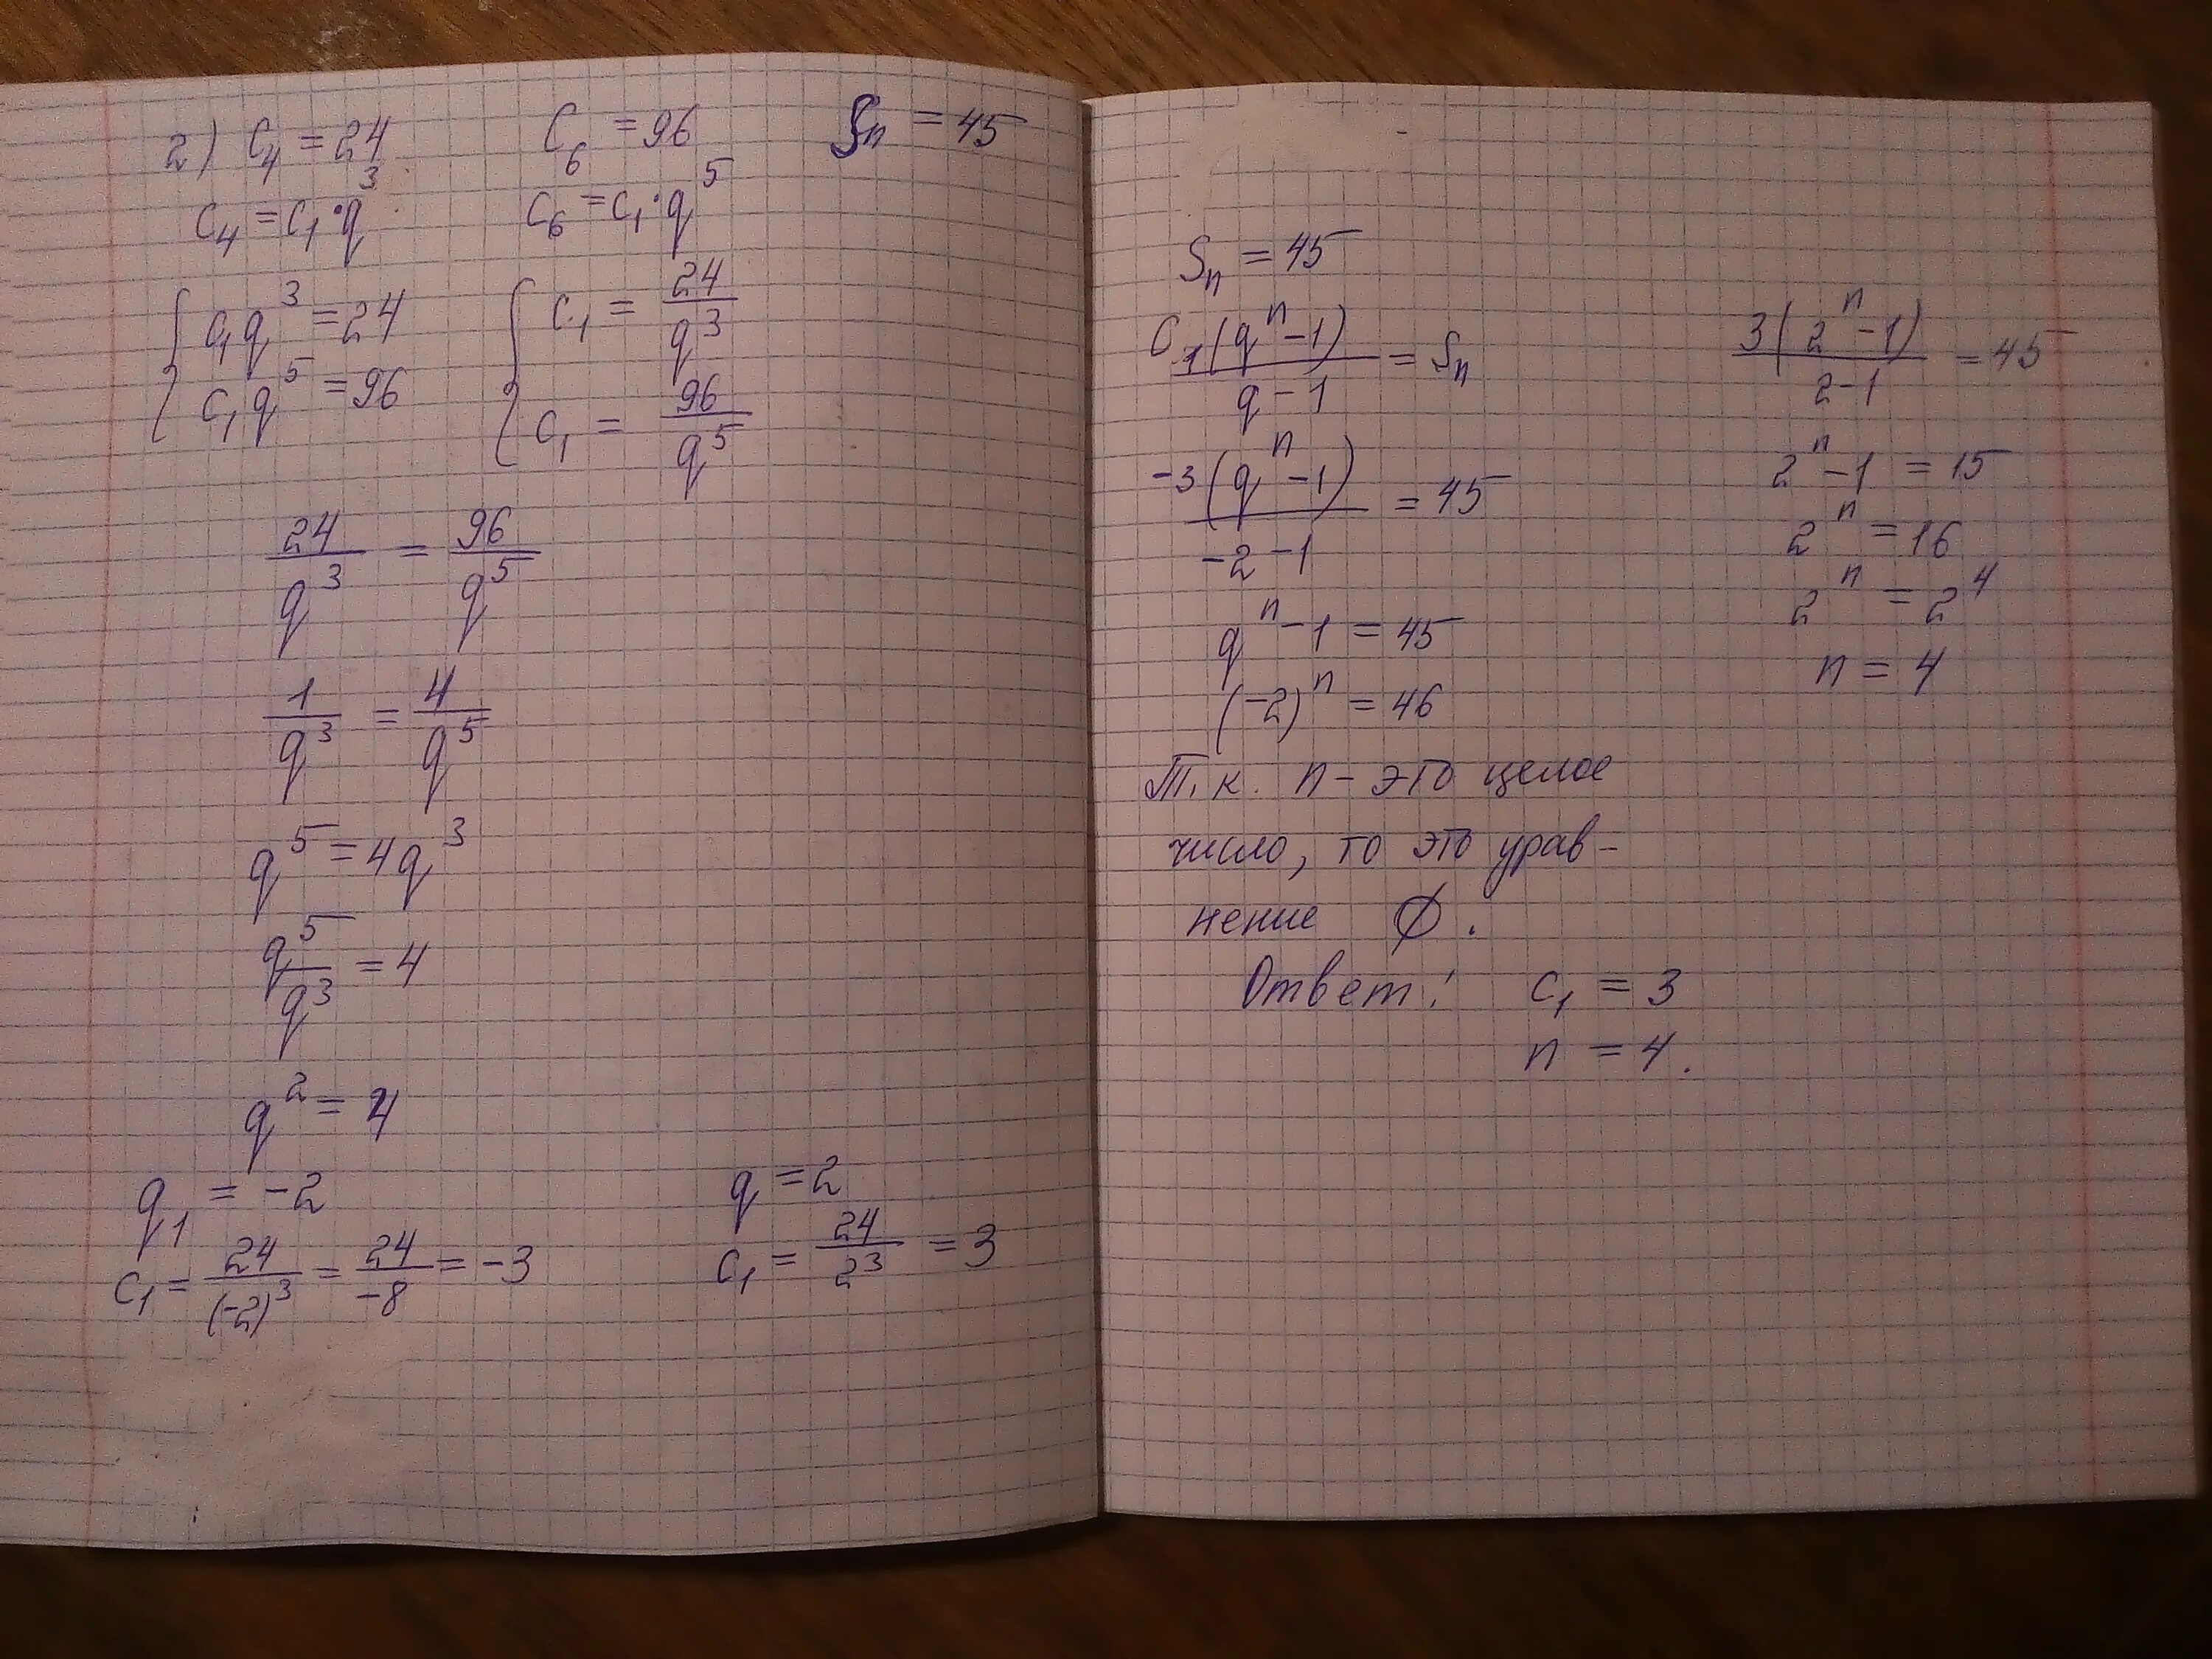 2) C₄ = 24 C₆ = 96 Sₙ = 45
C₄ = C₁·q³ C₆ = C₁·q⁵
{ C₁q³ = 24 { C₁ = 24/q³
{ C₁q⁵ = 96 { C₁ = 96/q⁵
24/q³ = 96/q⁵
1/q³ = 4/q⁵
q⁵ = 4q³
q⁵/q³ = 4
q² = 4
q₁ = -2 q = 2
C₁ = 24/(-2)³ = 24/-8 = -3 C₁ = 24/2³ = 3
Sₙ = 45
C₁(qⁿ-1)/q-1 = Sₙ
-3(qⁿ-1)/-2-1 = 45
qⁿ-1 = 45
(-2)ⁿ = 46
Т.к. n - это целое
число, то это урав-
нение ∅.
3(2ⁿ-1)/2-1 = 45
2ⁿ-1 = 15
2ⁿ = 16
2ⁿ = 2⁴
n = 4
Ответ: C₁ = 3
n = 4.